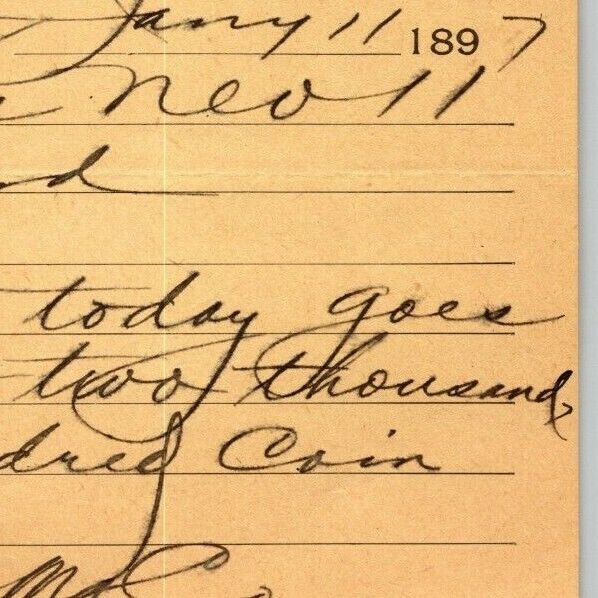 Jany 11 1897
Neo 11
today goes
two thousand
dred Coin